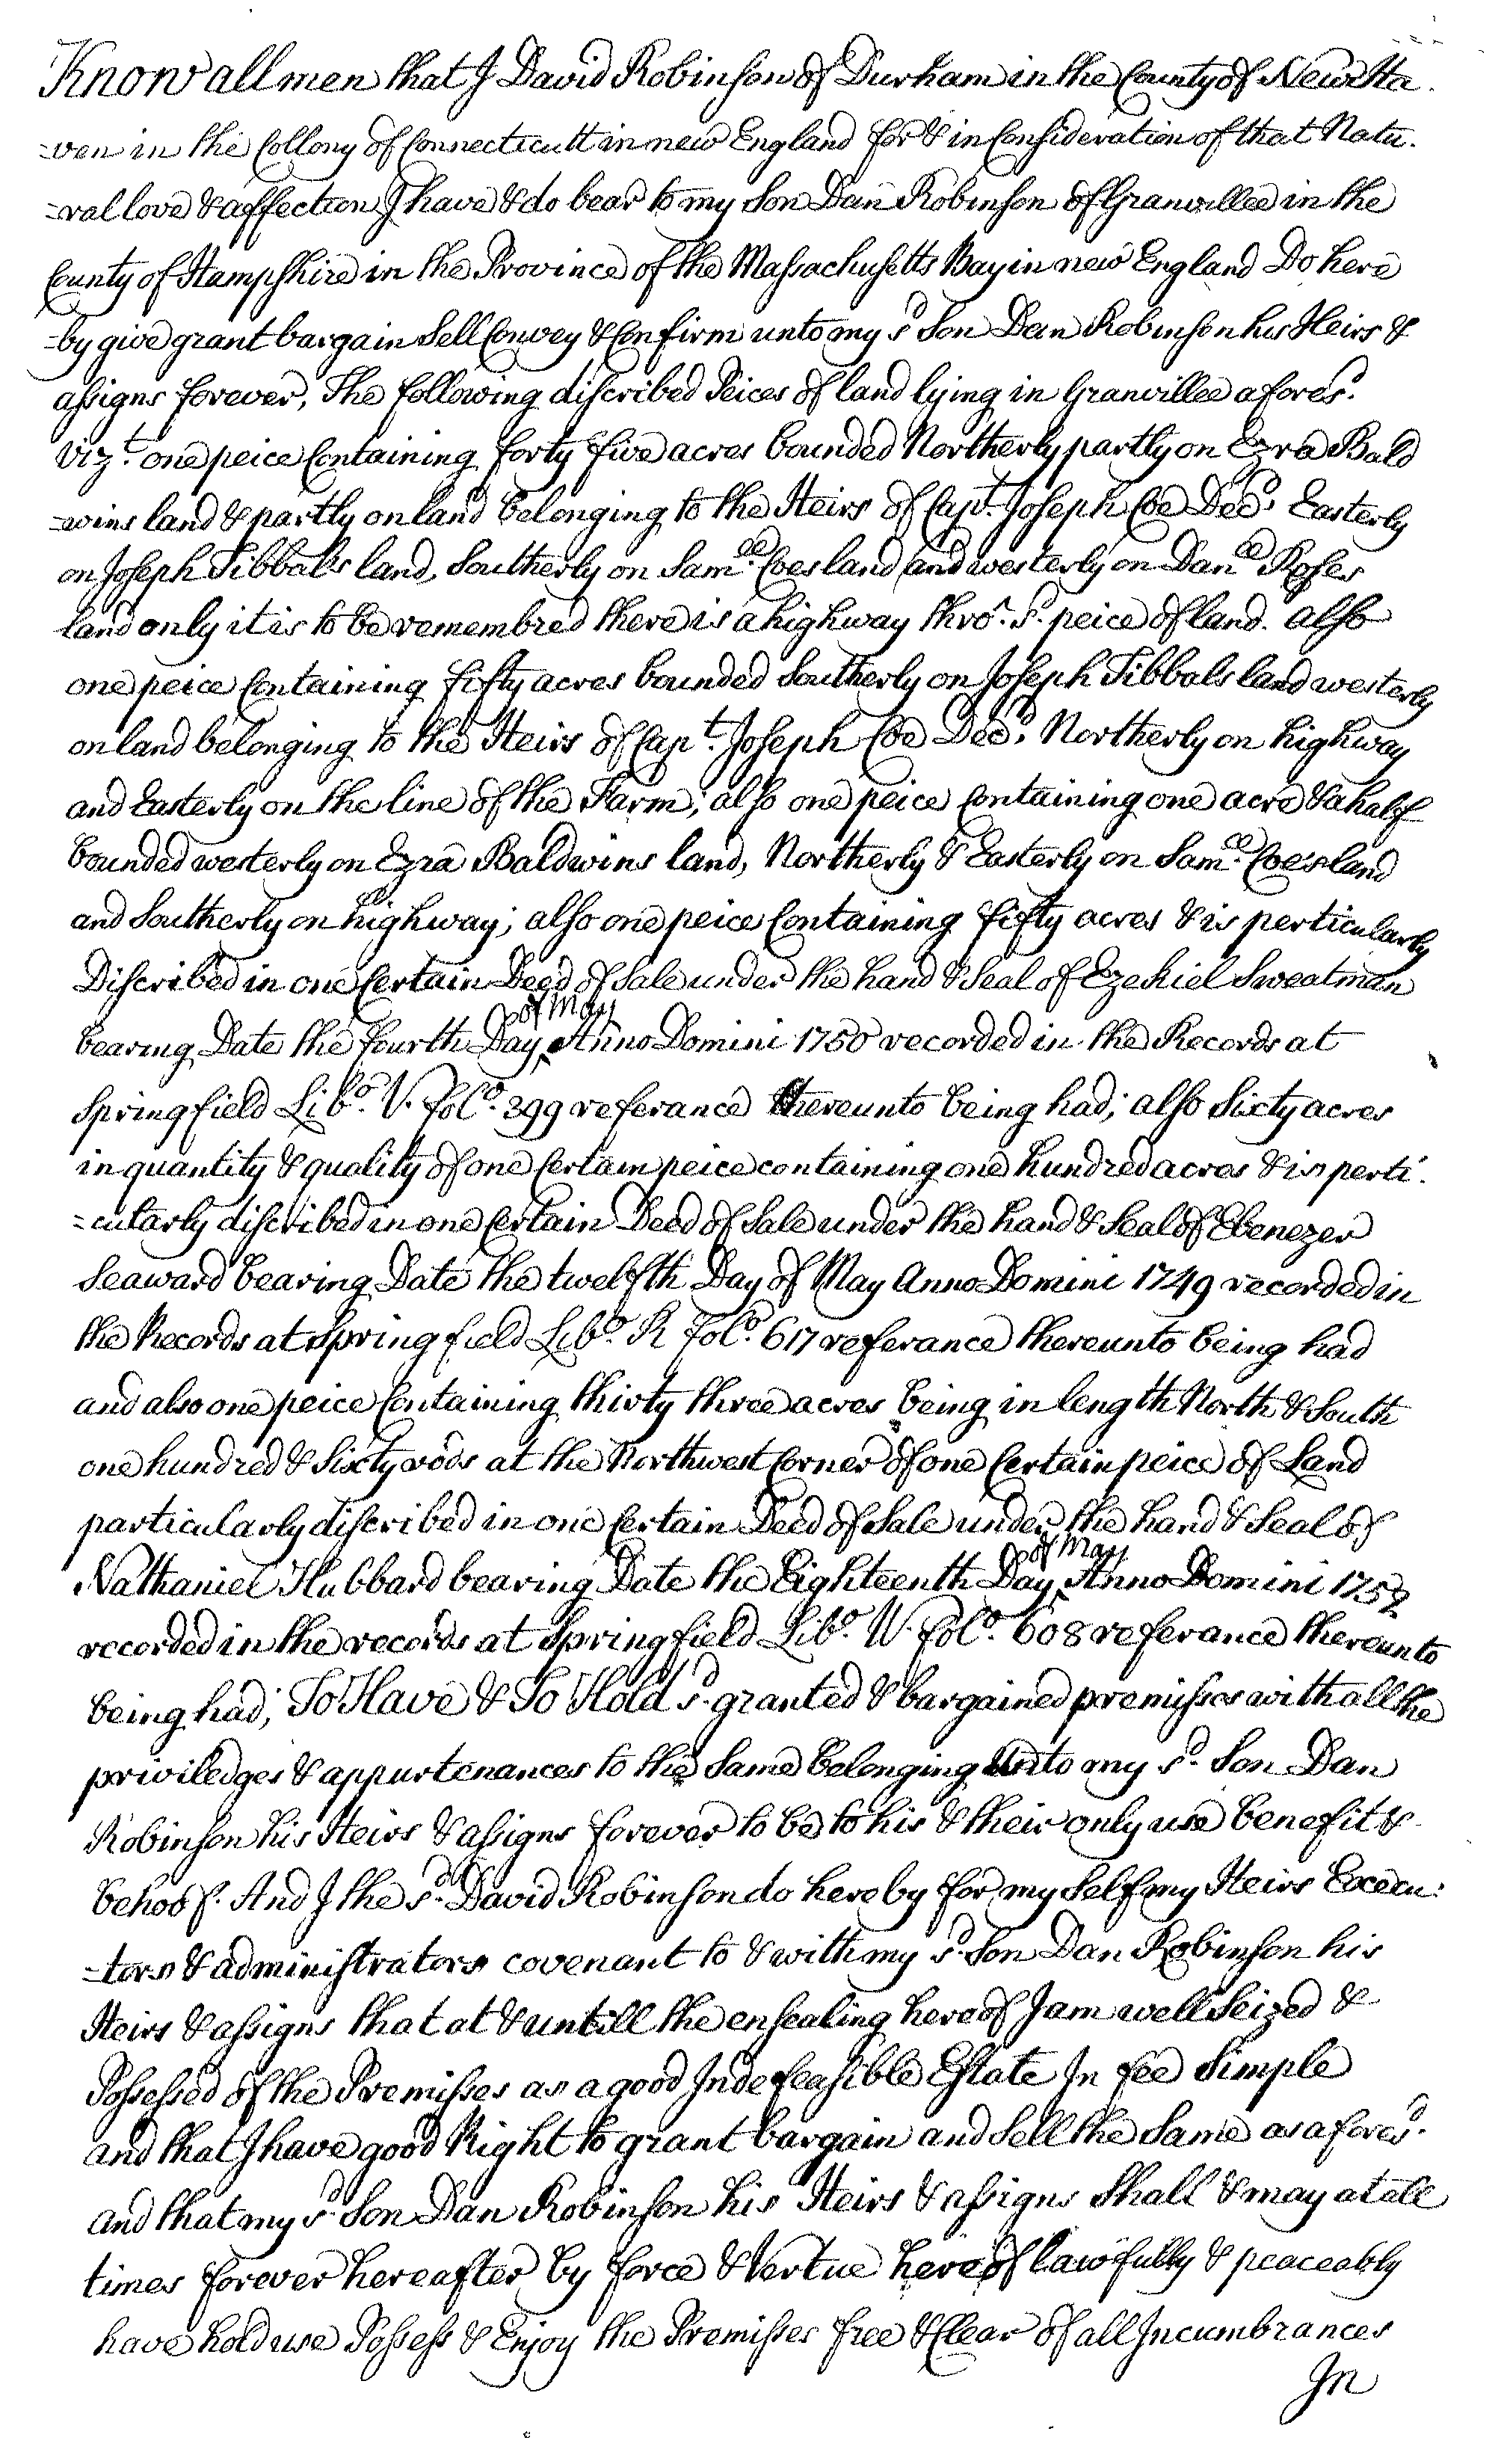 Know all men that I David Robinson of Durham in the County of New Ha-
-ven in the Collony of Connecticutt in new England for & in Consideration of that Natu-
-ral love & affection I have & do bear to my Son Dan Robinson of Granvillee in the
County of Hampshire in the Province of the Massachusetts Bay in new England Do here
-by give grant bargain Sell Convey & Confirm unto my sd Son Dan Robinson his Heirs &
assigns forever, The following discribed Peices of land lying in Granvillee afores.d
Viz.t one peice Containing forty five acres bounded Northerly partly on Ezra Bald
-wins land & partly on land belonging to the Heirs of Cap.t Joseph Coe Dec.d Easterly
on Joseph Tibbals land, Southerly on Sam.ll Coes land and westerly on Dan.ll Roses
land only it is to be remembred there is a highway thro.' s.d peice of land. also
one peice Containing fifty acres bounded Southerly on Joseph Tibbals land westerly
on land belonging to the Heirs of Cap.t Joseph Coe Dec.d Northerly on highway
and Easterly on the line of the Farm; also one peice Containing one acre & a half
bounded westerly on Ezra Baldwins land, Northerly & Easterly on Sam.ll Coe's land
and Southerly on highway; also one peice Containing fifty acres & is perticularly
Discribed in one Certain Deed of Sale under the hand & Seal of Ezekiel Sweatman
bearing Date the fourth Day of May Anno Domini 1750 recorded in the Records at
Springfield Lib.o V. fol.o 399 referance thereunto being had; also Sixty acres
in quantity & quality of one Certain peice containing one hundred acres & is perti-
-cularly discribed in one Certain Deed of Sale under the hand & Seal of Ebenezer
Seaward bearing Date the twelfth Day of May Anno Domini 1749 recorded in
the Records at Springfield Lib.o R fol.o 617 referance thereunto being had
and also one peice Containing thirty three acres being in length North & South
one hundred & Sixty rods at the Northwest Corner of one Certain peice of Land
particularly discribed in one Certain Deed of Sale under the hand & Seal of
Nathaniel Hubbard bearing Date the Eighteenth Day of May Anno Domini 1752
recorded in the records at Springfield Lib.o W. fol.o 608 referance thereunto
being had; To Have & To Hold s.d granted & bargained premisses with all the
priviledges & appurtenances to the Same belonging Unto my s.d Son Dan
Robinson his Heirs & assigns forever to be to his & their only use benefit &
behoof. And I the s.d David Robinson do hereby for my Self my Heirs Execu-
-tors & administrators covenant to & with my s.d Son Dan Robinson his
Heirs & assigns that at & untill the ensealing hereof I am well Seized &
Possessed of the Premisses as a good Indefeasible Estate In fee Simple
and that I have good Right to grant bargain and Sell the Same as afores.d
and that my s.d Son Dan Robinson his Heirs & assigns Shall & may at all
times forever hereafter by force & Vertue hereof lawfully & peaceably
have hold use Possess & Enjoy the Premisses free & Clear of all Incumbrances
In